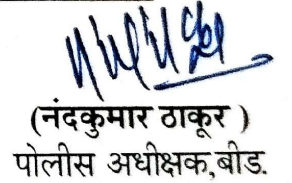 (नंदकुमार ठाकूर )
पोलीस अधीक्षक,बीड.